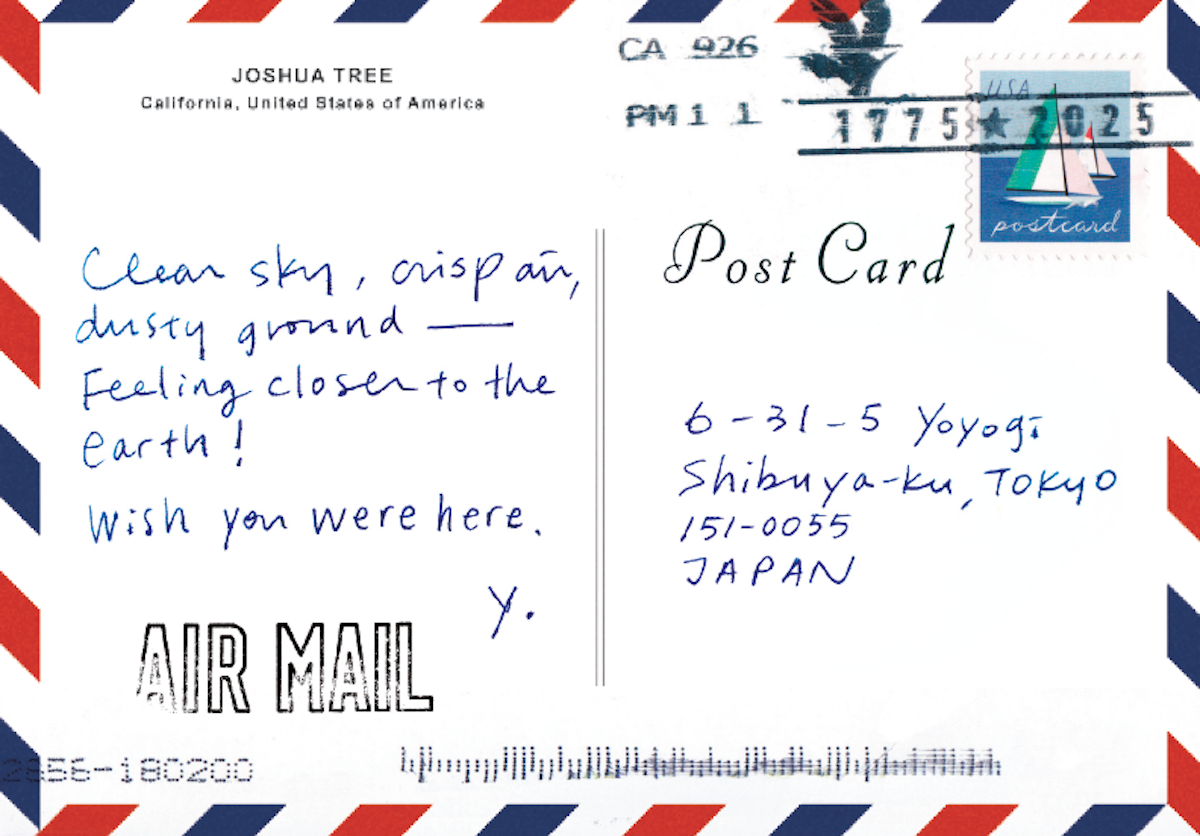 JOSHUA TREE
California, United States of America
CA 926
PM 1 1
1775★2025
USA
postcard
Post Card
Clear sky, crisp air,
dusty ground —
Feeling closer to the
earth!
Wish you were here.
Y.
6-31-5 Yoyogi
Shibuya-ku, Tokyo
151-0055
JAPAN
AIR MAIL
2856-180200